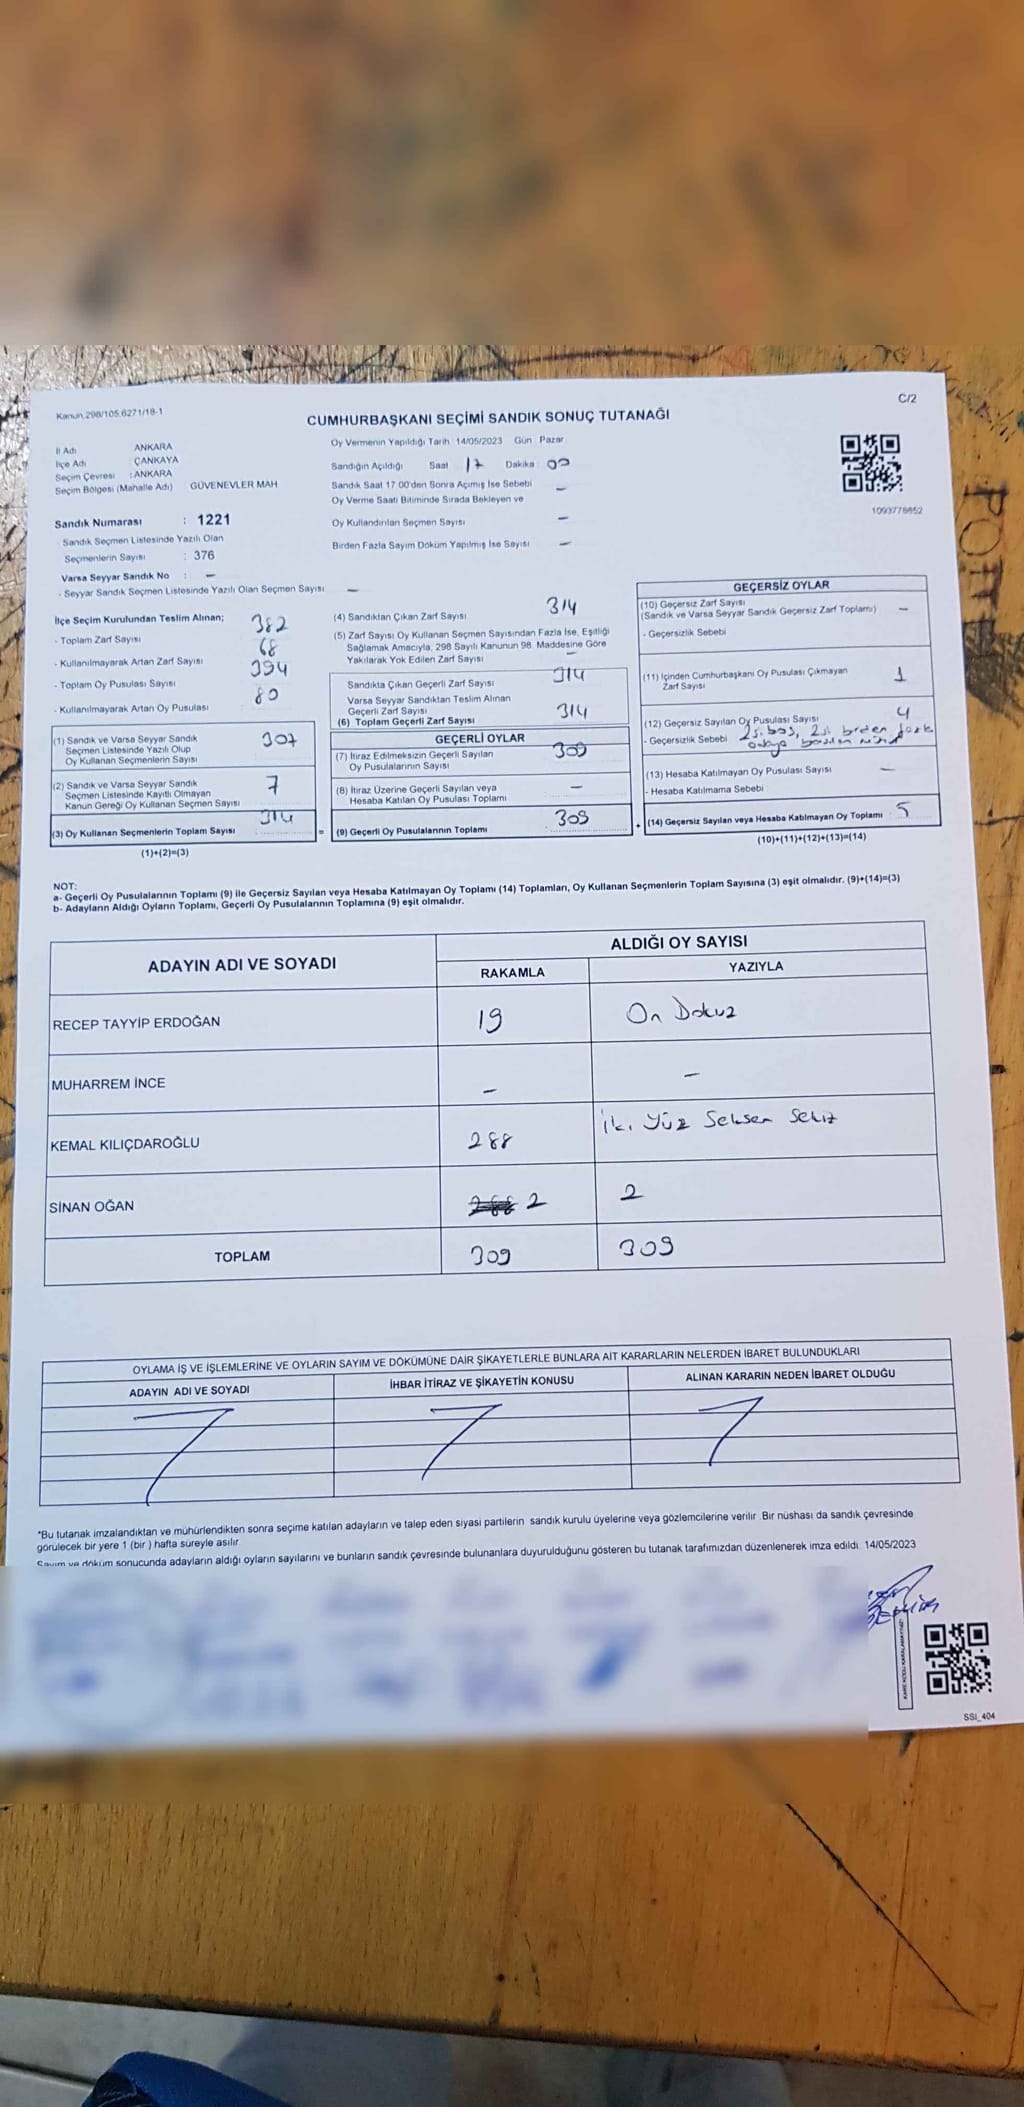 Kanun 298/105.6271/18-1
C/2
CUMHURBAŞKANI SEÇİMİ SANDIK SONUÇ TUTANAĞI
İl Adı ANKARA
İlçe Adı ÇANKAYA
Seçim Çevresi : ANKARA
Seçim Bölgesi (Mahalle Adı) GÜVENEVLER MAH
Sandık Numarası : 1221
Sandık Seçmen Listesinde Yazılı Olan
Seçmenlerin Sayısı : 376
Varsa Seyyar Sandık No : –
- Seyyar Sandık Seçmen Listesinde Yazılı Olan Seçmen Sayısı –
Oy Vermenin Yapıldığı Tarih 14/05/2023 Gün Pazar
Sandığın Açıldığı Saat 17 Dakika 00
Sandık Saat 17.00'den Sonra Açımış İse Sebebi –
Oy Verme Saati Bitiminde Sırada Bekleyen ve
Oy Kullandırılan Seçmen Sayısı –
Birden Fazla Sayım Döküm Yapılmış İse Sayısı –
1093778652
İlçe Seçim Kurulundan Teslim Alınan;
- Toplam Zarf Sayısı 382
- Kullanılmayarak Artan Zarf Sayısı 68
- Toplam Oy Pusulası Sayısı 394
- Kullanılmayarak Artan Oy Pusulası 80
(1) Sandık ve Varsa Seyyar Sandık
Seçmen Listesinde Yazılı Olup
Oy Kullanan Seçmenlerin Sayısı 307
(2) Sandık ve Varsa Seyyar Sandık
Seçmen Listesinde Kayıtlı Olmayan
Kanun Gereği Oy Kullanan Seçmen Sayısı 7
(3) Oy Kullanan Seçmenlerin Toplam Sayısı 314
(1)+(2)=(3)
(4) Sandıktan Çıkan Zarf Sayısı 314
(5) Zarf Sayısı Oy Kullanan Seçmen Sayısından Fazla İse, Eşitliği
Sağlamak Amacıyla, 298 Sayılı Kanunun 98. Maddesine Göre
Yakılarak Yok Edilen Zarf Sayısı –
Sandıkta Çıkan Geçerli Zarf Sayısı 314
Varsa Seyyar Sandıktan Teslim Alınan
Geçerli Zarf Sayısı
(6) Toplam Geçerli Zarf Sayısı 314
GEÇERLİ OYLAR
(7) İtiraz Edilmeksizin Geçerli Sayılan
Oy Pusulalarının Sayısı 309
(8) İtiraz Üzerine Geçerli Sayılan veya
Hesaba Katılan Oy Pusulası Toplamı –
= (9) Geçerli Oy Pusulalarının Toplamı 309
GEÇERSİZ OYLAR
(10) Geçersiz Zarf Sayısı
(Sandık ve Varsa Seyyar Sandık Geçersiz Zarf Toplamı) –
- Geçersizlik Sebebi
(11) İçinden Cumhurbaşkanı Oy Pusulası Çıkmayan
Zarf Sayısı 1
(12) Geçersiz Sayılan Oy Pusulası Sayısı 4
- Geçersizlik Sebebi 2si boş, 2si birden fazla
(13) Hesaba Katılmayan Oy Pusulası Sayısı –
- Hesaba Katılmama Sebebi
+ (14) Geçersiz Sayılan veya Hesaba Katılmayan Oy Toplamı : 5
(10)+(11)+(12)+(13)=(14)
NOT:
a- Geçerli Oy Pusulalarının Toplamı (9) ile Geçersiz Sayılan veya Hesaba Katılmayan Oy Toplamı (14) Toplamları, Oy Kullanan Seçmenlerin Toplam Sayısına (3) eşit olmalıdır. (9)+(14)=(3)
b- Adayların Aldığı Oyların Toplamı, Geçerli Oy Pusulalarının Toplamına (9) eşit olmalıdır.
ADAYIN ADI VE SOYADI
ALDIĞI OY SAYISI
RAKAMLA YAZIYLA
RECEP TAYYİP ERDOĞAN 19 On Dokuz
MUHARREM İNCE – –
KEMAL KILIÇDAROĞLU 288 İki Yüz Seksen Sekiz
SİNAN OĞAN 288 2 2
TOPLAM 309 309
OYLAMA İŞ VE İŞLEMLERİNE VE OYLARIN SAYIM VE DÖKÜMÜNE DAİR ŞİKAYETLERLE BUNLARA AİT KARARLARIN NELERDEN İBARET BULUNDUKLARI
ADAYIN ADI VE SOYADI İHBAR İTİRAZ VE ŞİKAYETİN KONUSU ALINAN KARARIN NEDEN İBARET OLDUĞU
*Bu tutanak imzalandıktan ve mühürlendikten sonra seçime katılan adayların ve talep eden siyasi partilerin sandık kurulu üyelerine veya gözlemcilerine verilir. Bir nüshası da sandık çevresinde
görülecek bir yere 1 (bir ) hafta süreyle asılır.
Sayım ve döküm sonucunda adayların aldığı oyların sayılarını ve bunların sandık çevresinde bulunanlara duyurulduğunu gösteren bu tutanak tarafımızdan düzenlenerek imza edildi. 14/05/2023
KARE KODU KARALAMAYINIZ!
SSI_404